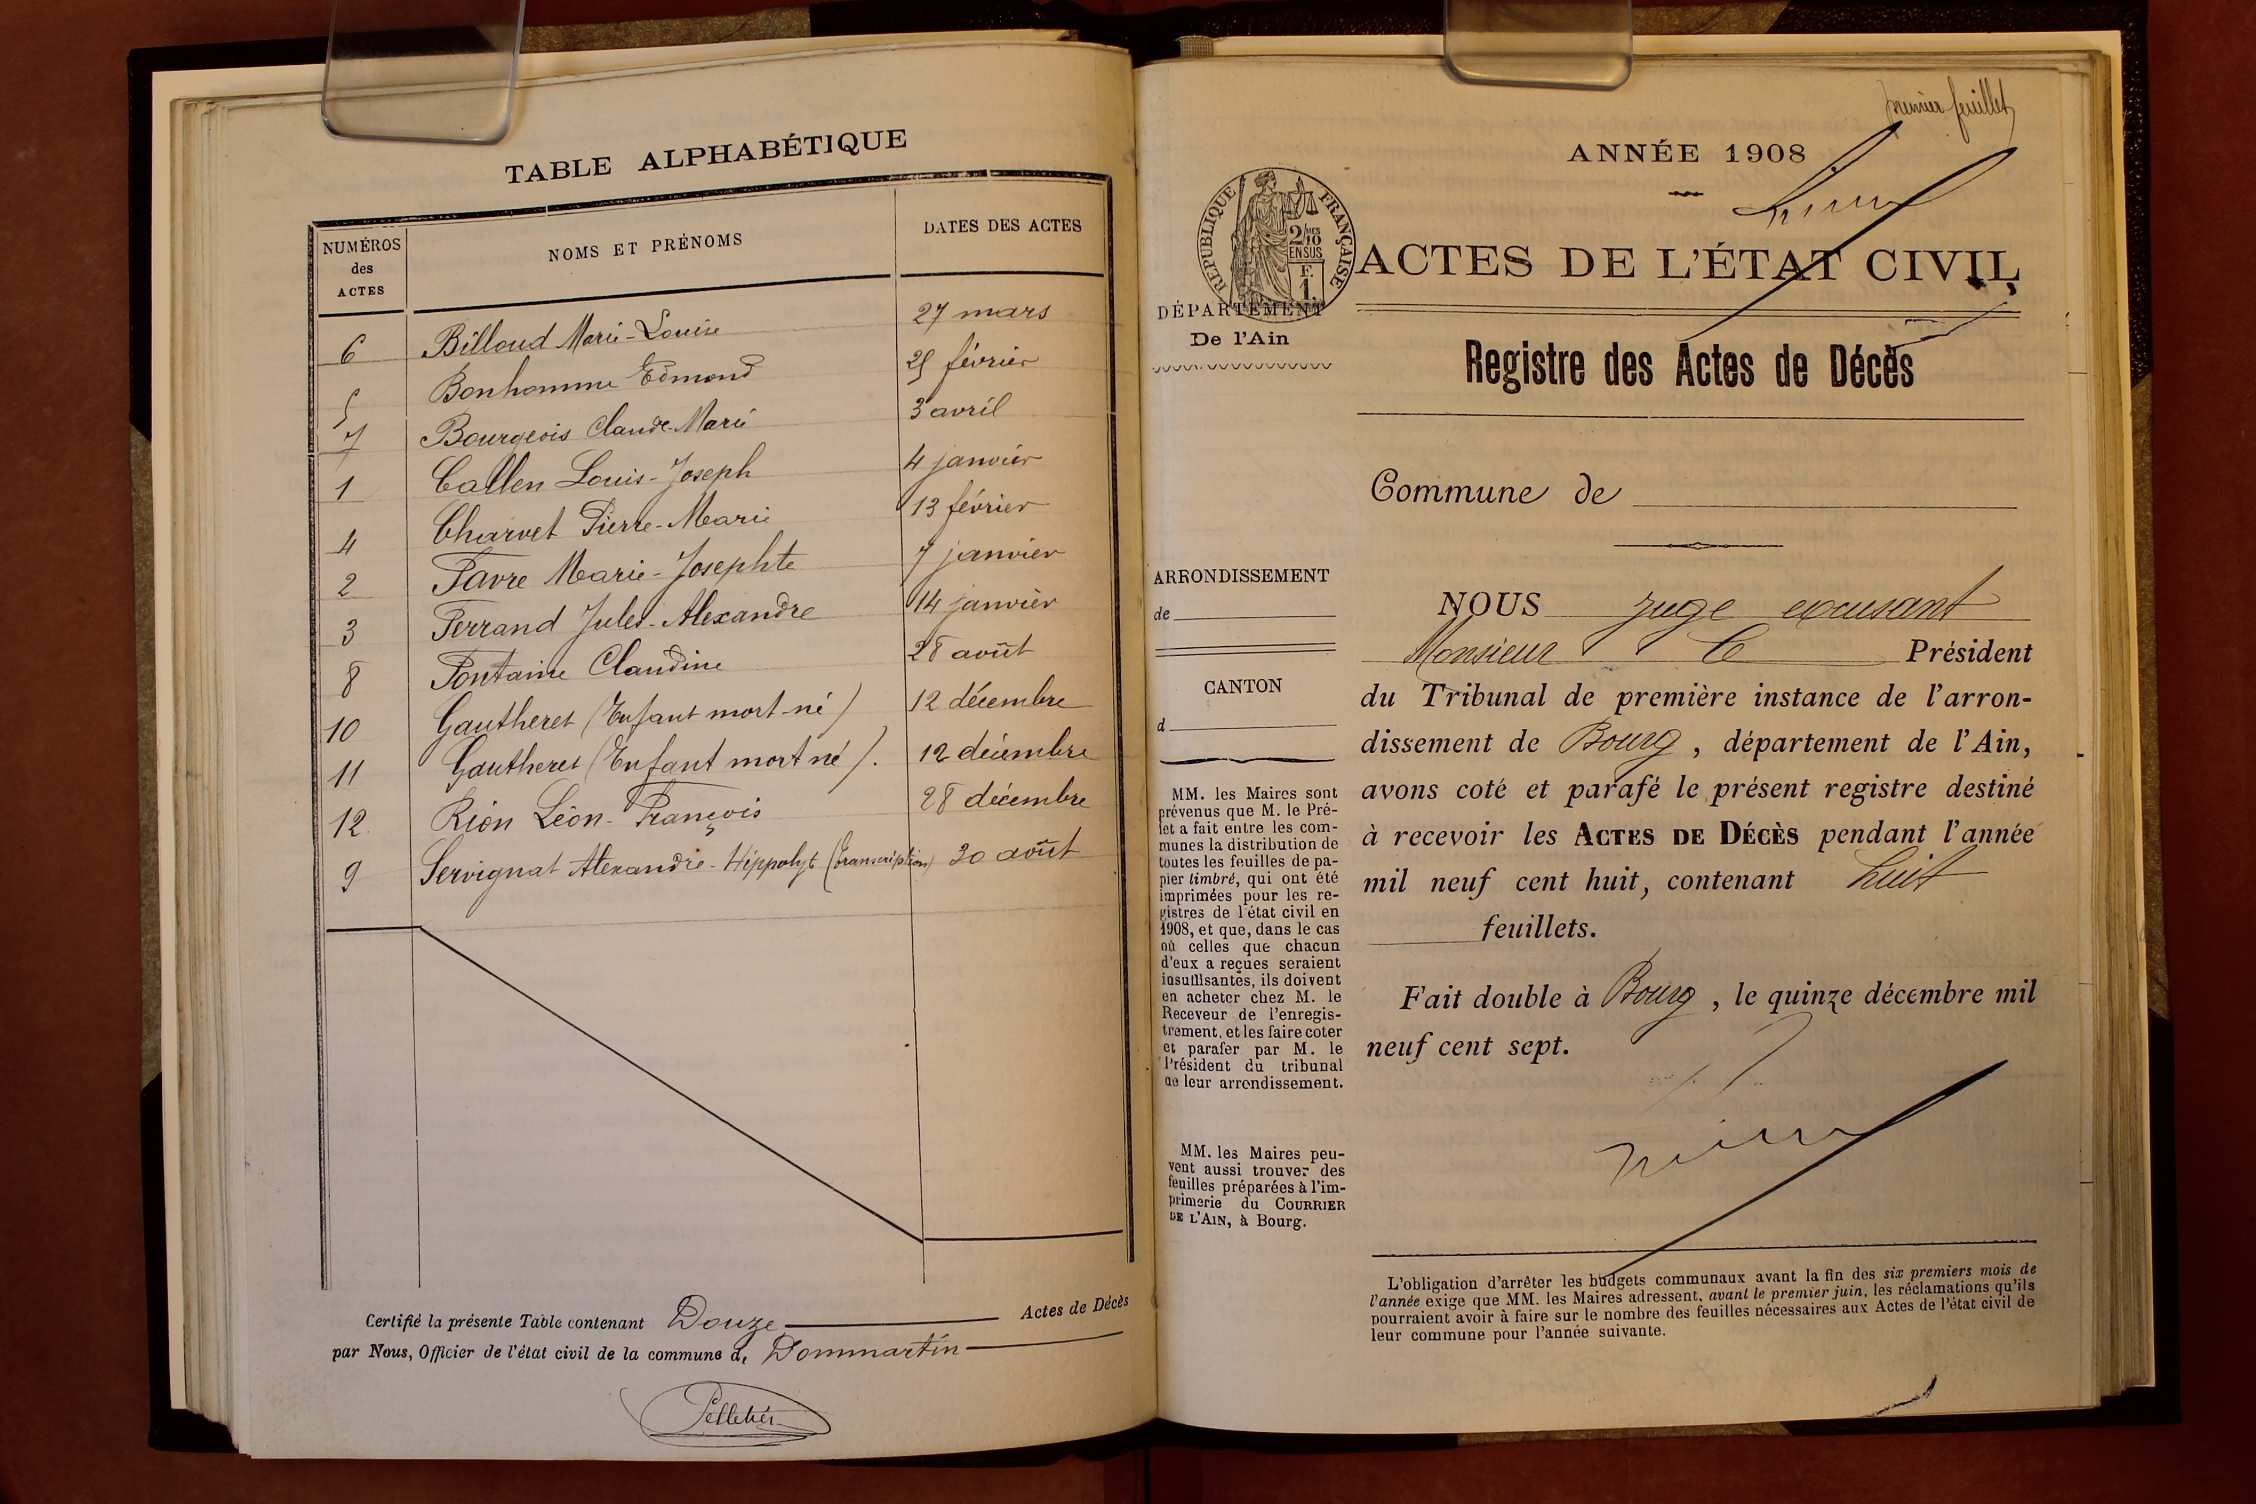 TABLE ALPHABÉTIQUE
NUMÉROS des ACTES
NOMS ET PRÉNOMS
DATES DES ACTES
6 Billoud Marie-Louise 27 mars
5 Bonhomme Edmond 25 février
7 Bourgeois Claude-Marie 3 avril
1 Callen Louis-Joseph 4 janvier
4 Charvet Pierre-Marie 13 février
2 Favre Marie-Josephte 7 janvier
3 Ferrand Jules-Alexandre 14 janvier
8 Fontaine Claudine 28 août
10 Gautheret (Enfant mort-né) 12 décembre
11 Gautheret (Enfant mort né). 12 décembre
12 Rion Léon-François 28 décembre
9 Servignat Alexandre-Hippolyt (transcription) 30 août
Certifié la présente Table contenant Douze Actes de Décès
par Nous, Officier de l'état civil de la commune d, Dommartin
Pelletier
premier feuillet
ANNÉE 1908
RÉPUBLIQUE FRANÇAISE
2/10 MES
EN SUS
F.
1.
ACTES DE L'ÉTAT CIVIL
DÉPARTEMENT
De l'Ain
Registre des Actes de Décès
Commune de
ARRONDISSEMENT
de
CANTON
d
MM. les Maires sont
prévenus que M. le Pré-
fet a fait entre les com-
munes la distribution de
toutes les feuilles de pa-
pier timbré, qui ont été
imprimées pour les re-
gistres de l'état civil en
1908, et que, dans le cas
où celles que chacun
d'eux a reçues seraient
insuffisantes, ils doivent
en acheter chez M. le
Receveur de l'enregis-
trement, et les faire coter
et parafer par M. le
Président du tribunal
de leur arrondissement.
MM. les Maires peu-
vent aussi trouver des
feuilles préparées à l'im-
primerie du COURRIER
DE L'AIN, à Bourg.
NOUS juge excusant
Monsieur le Président
du Tribunal de première instance de l'arron-
dissement de Bourg, département de l'Ain,
avons coté et parafé le présent registre destiné
à recevoir les ACTES DE DÉCÈS pendant l'année
mil neuf cent huit, contenant huit
feuillets.
Fait double à Bourg, le quinze décembre mil
neuf cent sept.
L'obligation d'arrêter les budgets communaux avant la fin des six premiers mois de
l'année exige que MM. les Maires adressent, avant le premier juin, les réclamations qu'ils
pourraient avoir à faire sur le nombre des feuilles nécessaires aux Actes de l'état civil de
leur commune pour l'année suivante.